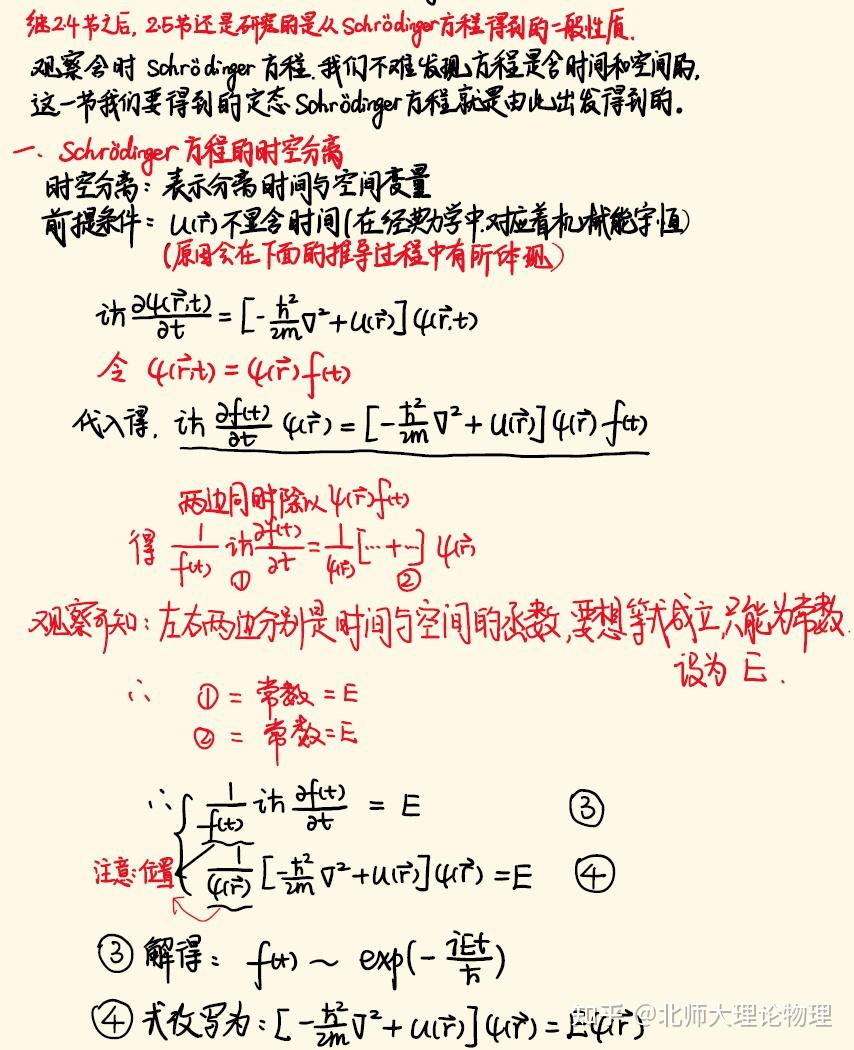 继2.4节之后, 2.5节还是研究的是从Schrödinger方程得到的一般性质.
观察含时 Schrödinger 方程.我们不难发现方程是含时间和空间的,
这一节我们要得到的定态Schrödinger方程就是由此出发得到的。
一、Schrödinger 方程的时空分离
时空分离: 表示分离时间与空间变量
前提条件: U(r⃗)不显含时间(在经典力学中,对应着机械能守恒)
(原因会在下面的推导过程中有所体现)
iħ ∂ψ(r⃗,t)/∂t = [-ħ²/2m ∇² + U(r⃗)] ψ(r⃗,t)
令 ψ(r⃗,t) = ψ(r⃗) f(t)
代入得, iħ ∂f(t)/∂t ψ(r⃗) = [-ħ²/2m ∇² + U(r⃗)] ψ(r⃗) f(t)
两边同时除以 ψ(r⃗)f(t)
得 1/f(t) iħ ∂f(t)/∂t = 1/ψ(r⃗) [⋯+⋯] ψ(r⃗)
① ②
观察可知: 左右两边分别是时间与空间的函数,要想等式成立,只能为常数.
设为 E.
∴ ① = 常数 = E
② = 常数 = E
∴ { 1/f(t) iħ ∂f(t)/∂t = E ③
注意:位置 1/ψ(r⃗) [-ħ²/2m ∇² + U(r⃗)] ψ(r⃗) = E ④
③ 解得: f(t) ~ exp(-iEt/ħ)
④ 式改写为: [-ħ²/2m ∇² + U(r⃗)] ψ(r⃗) = Eψ(r⃗)
知乎 @北师大理论物理